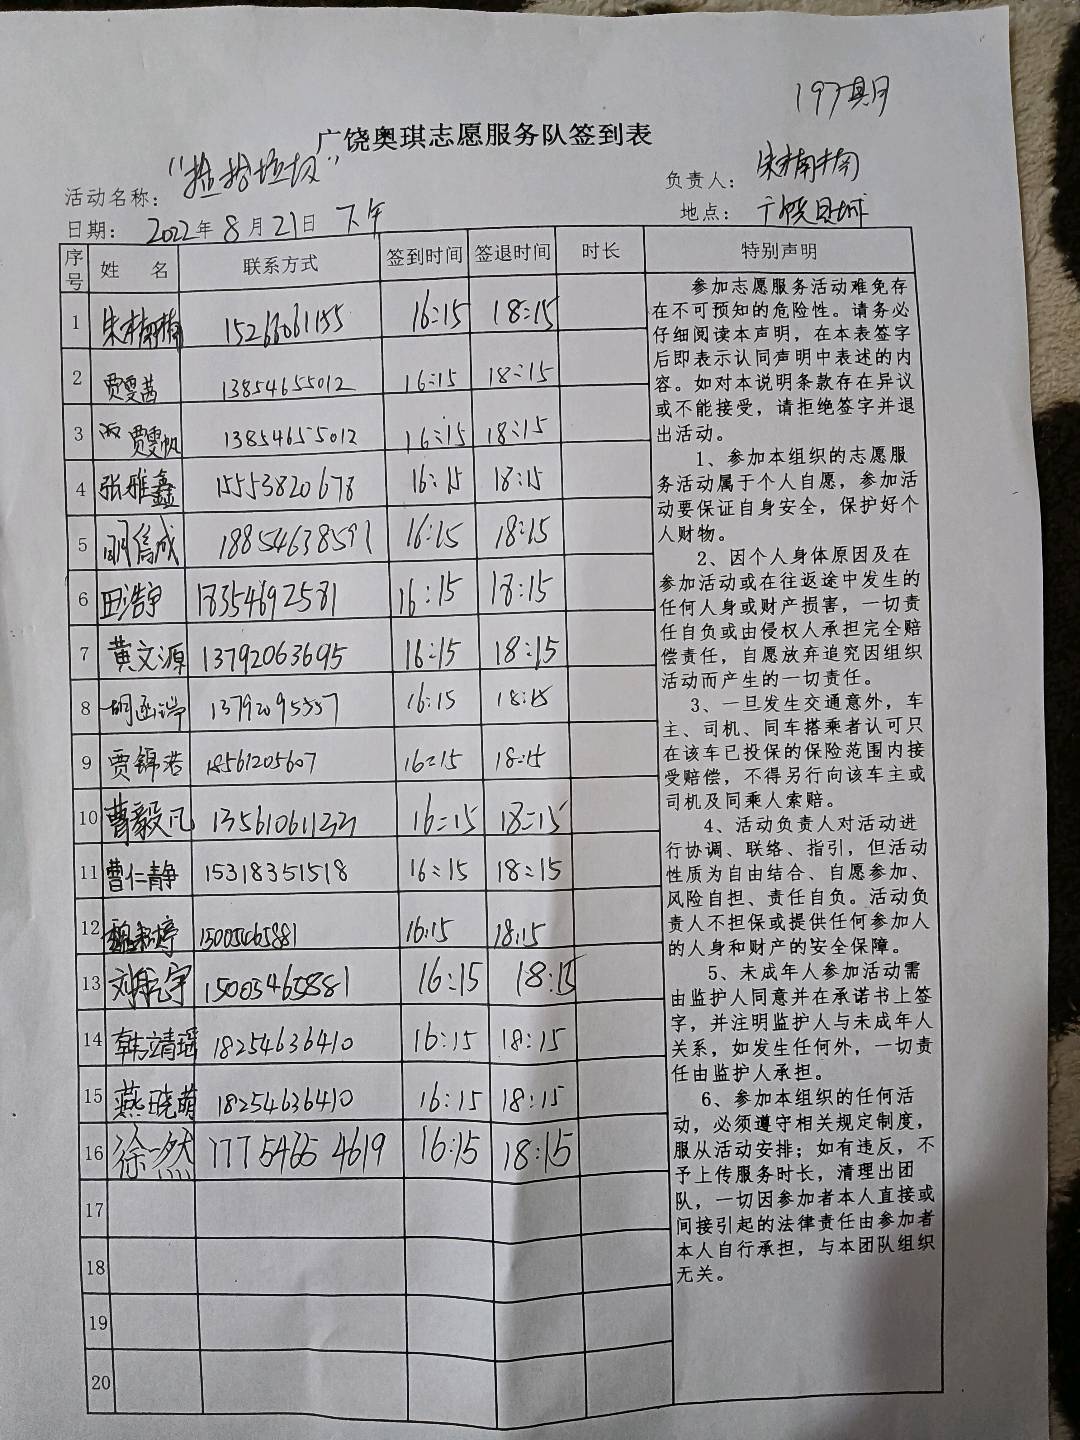 197期
广饶奥琪志愿服务队签到表
活动名称：“捡拾垃圾”
负责人：朱楠楠
日期：2022年8月21日 下午
地点：广饶县城
序号 姓 名 联系方式 签到时间 签退时间 时长 特别声明
1 朱楠楠 15266061155 16:15 18:15
2 贾雯茜 13854655012 16:15 18:15
3 贾雯帆 13854655012 16:15 18:15
4 张雅鑫 15553820678 16:15 18:15
5 明信成 18854638591 16:15 18:15
6 田浩宇 18354692581 16:15 18:15
7 黄文源 13792063695 16:15 18:15
8 胡函瑞 13792095557 16:15 18:15
9 贾锦若 18561205607 16:15 18:15
10 曹毅凡 13561061133 16:15 18:15
11 曹仁静 15318351518 16:15 18:15
12 15005465881 16:15 18:15
13 刘宇 15005465881 16:15 18:15
14 韩靖瑶 18254636410 16:15 18:15
15 燕晓萌 18254636410 16:15 18:15
16 徐一然 17754654619 16:15 18:15
17
18
19
20
参加志愿服务活动难免存
在不可预知的危险性。请务必
仔细阅读本声明，在本表签字
后即表示认同声明中表述的内
容。如对本说明条款存在异议
或不能接受，请拒绝签字并退
出活动。
1、参加本组织的志愿服
务活动属于个人自愿，参加活
动要保证自身安全，保护好个
人财物。
2、因个人身体原因及在
参加活动或在往返途中发生的
任何人身或财产损害，一切责
任自负或由侵权人承担完全赔
偿责任，自愿放弃追究因组织
活动而产生的一切责任。
3、一旦发生交通意外，车
主、司机、同车搭乘者认可只
在该车已投保的保险范围内接
受赔偿，不得另行向该车主或
司机及同乘人索赔。
4、活动负责人对活动进
行协调、联络、指引，但活动
性质为自由结合、自愿参加、
风险自担、责任自负。活动负
责人不担保或提供任何参加人
的人身和财产的安全保障。
5、未成年人参加活动需
由监护人同意并在承诺书上签
字，并注明监护人与未成年人
关系，如发生任何外，一切责
任由监护人承担。
6、参加本组织的任何活
动，必须遵守相关规定制度，
服从活动安排；如有违反，不
予上传服务时长，清理出团
队，一切因参加者本人直接或
间接引起的法律责任由参加者
本人自行承担，与本团队组织
无关。